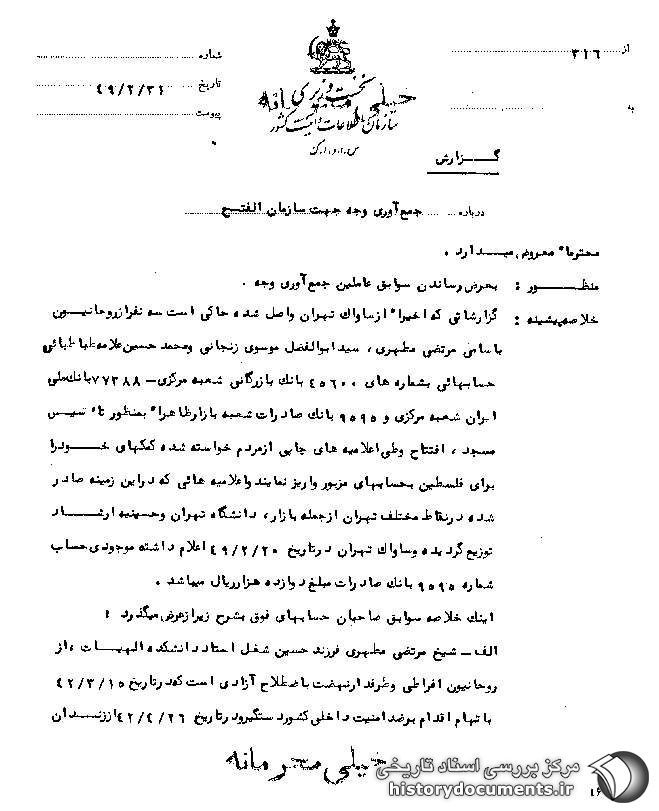 از ۳۱۶
شماره
به
تاریخ ۴۹/۲/۳۱
پیوست
نخست وزیری
خیلی محرمانه
سازمان اطلاعات و امنیت کشور
س.ا.و.ا.ک
گـزارش
درباره جمع‌آوری وجه جهت سازمان الفتح
محترماً معروض میدارد .
منظـور : بعرض رساندن سوابق عاملین جمع‌آوری وجه .
خلاصه پیشینه : گزارشاتی که اخیراً از ساواک تهران واصل شده حاکی است سه نفر از روحانیـون
باسامی مرتضی مطهری ، سید ابوالفضل موسوی زنجانی و محمد حسین علامه طباطبائی
حسابهائی بشماره های ۴۵۶۰۰ بانک بازرگانی شعبه مرکزی – ۷۷۳۸۸ بانک ملی
ایران شعبه مرکزی و ۹۵۹۵ بانک صادرات شعبه بازار ظاهراً بمنظور تأسیس
مسجد ، افتتاح و طی اعلامیه های چاپی از مردم خواسته شده کمکهای خـود را
برای فلسطین بحسابهای مزبور واریز نمایند و اعلامیه هائی که در این زمینه صادر
شده در نقاط مختلف تهران از جمله بازار ، دانشگاه تهران و حسینیه ارشـاد
توزیع گردیده و ساواک تهران در تاریخ ۴۹/۲/۲۰ اعلام داشته موجودی حساب
شماره ۹۵۹۵ بانک صادرات مبلغ دوازده هزار ریال میباشد .
اینک خلاصه سوابق صاحبان حسابهای فوق بشرح زیر از عرض میگذرد :
الف – شیخ مرتضی مطهری فرزند حسین شغل استاد دانشکده الهیـات ، از
روحانیون افراطی و طرفدار نهضت باصطلاح آزادی است که در تاریخ ۴۲/۳/۱۵
باتهام اقدام بر ضد امنیت داخلی کشور دستگیر و در تاریخ ۴۲/۴/۲۶ از زنـدان
خیلی محرمانه
مرکز بررسی اسناد تاریخی
historydocuments.ir